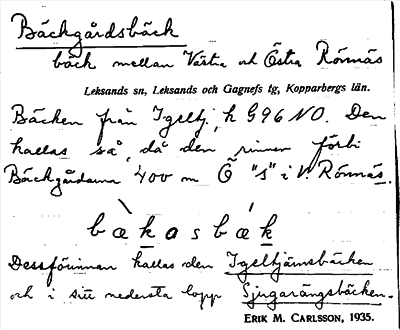 Bäckgårdsbäck
bäck mellan Västra och Östra Rönnäs
Leksands sn, Leksands och Gagnefs tg, Kopparbergs län.
Bäcken från Igeltj, h 996 NO. Den
kallas så, då den rinner förbi
Bäckgårdarna 400 m Ö "s" i V. Rönnäs.
bækasbæk
Dessförinnan kallas den Igeltjärnsbäcken
och i sitt nedersta lopp Sjugarängsbäcken.
ERIK M. CARLSSON, 1935.